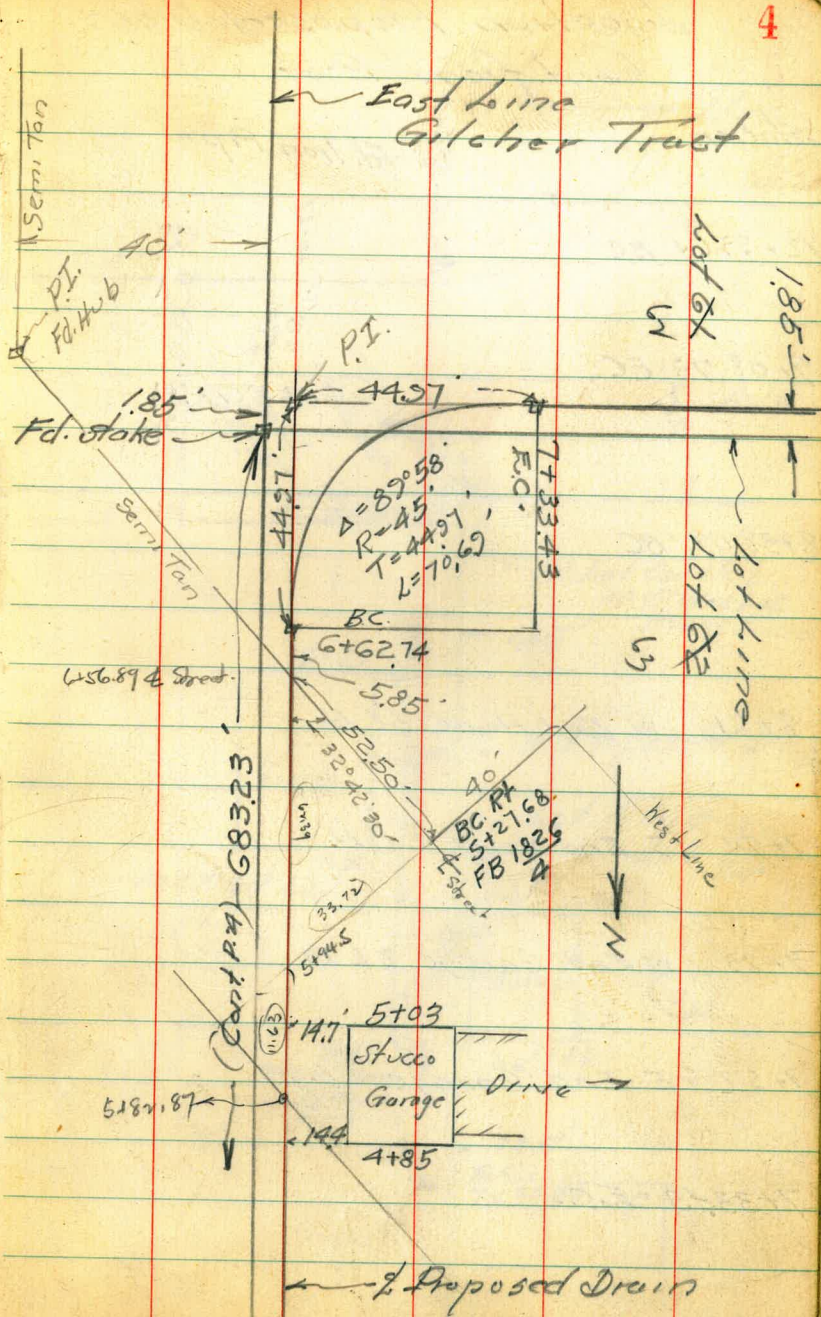 4
East Line
Gilcher Tract
Semi Tan
40'
P.I.
Fd. Hub
Lot 61
62
1.85'
P.I.
44.97'
1.85'
Fd. stake
44.97'
Δ = 89°58'
R = 45'
T = 44.97'
L = 70.69'
E.C.
7+33.43
Lot Line
Lot 62
63
Semi Tan
B.C.
6+62.74
6+56.89 ℄ Street.
5.85'
52.50'
32°42'30"
40'
B.C. Rt
5+27.68
FB 1826
4
℄ Street
West Line
N
(Cont. P.4) - 683.23'
33.72'
5+94.5
11.63
14.7'
5+03
Stucco
Garage
Drive
5+82.87
14.4
4+85
℄ Proposed Drain